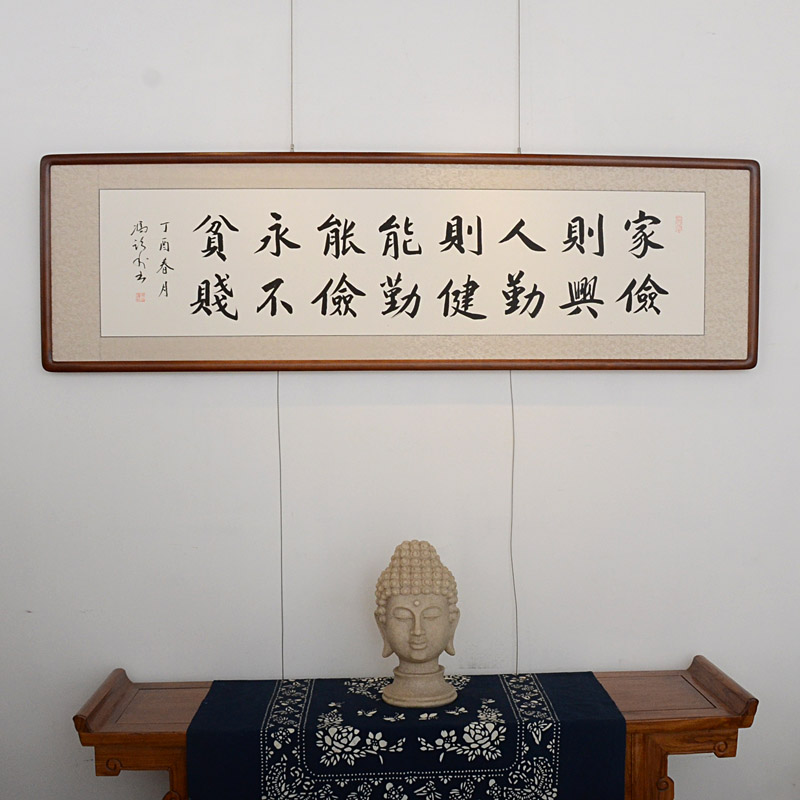 家儉
則興
人勤
則健
能勤
能儉
永不
貧賤
丁酉春月